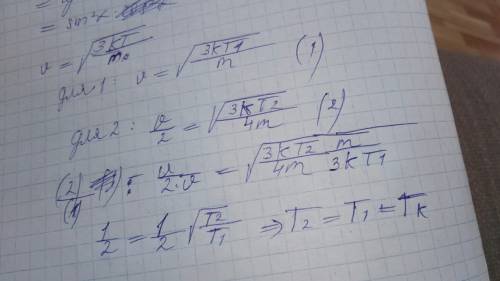 = sin²x
v = √(3kT/m₀)
для 1: v = √(3kT1/m) (1)
для 2: v/2 = √(3kT2/4m) (2)
(2)/(1) : v/2·v = √(3kT2/4m · m/3kT1)
1/2 = 1/2 √(T2/T1) ⇒ T2 = T1 = Tк